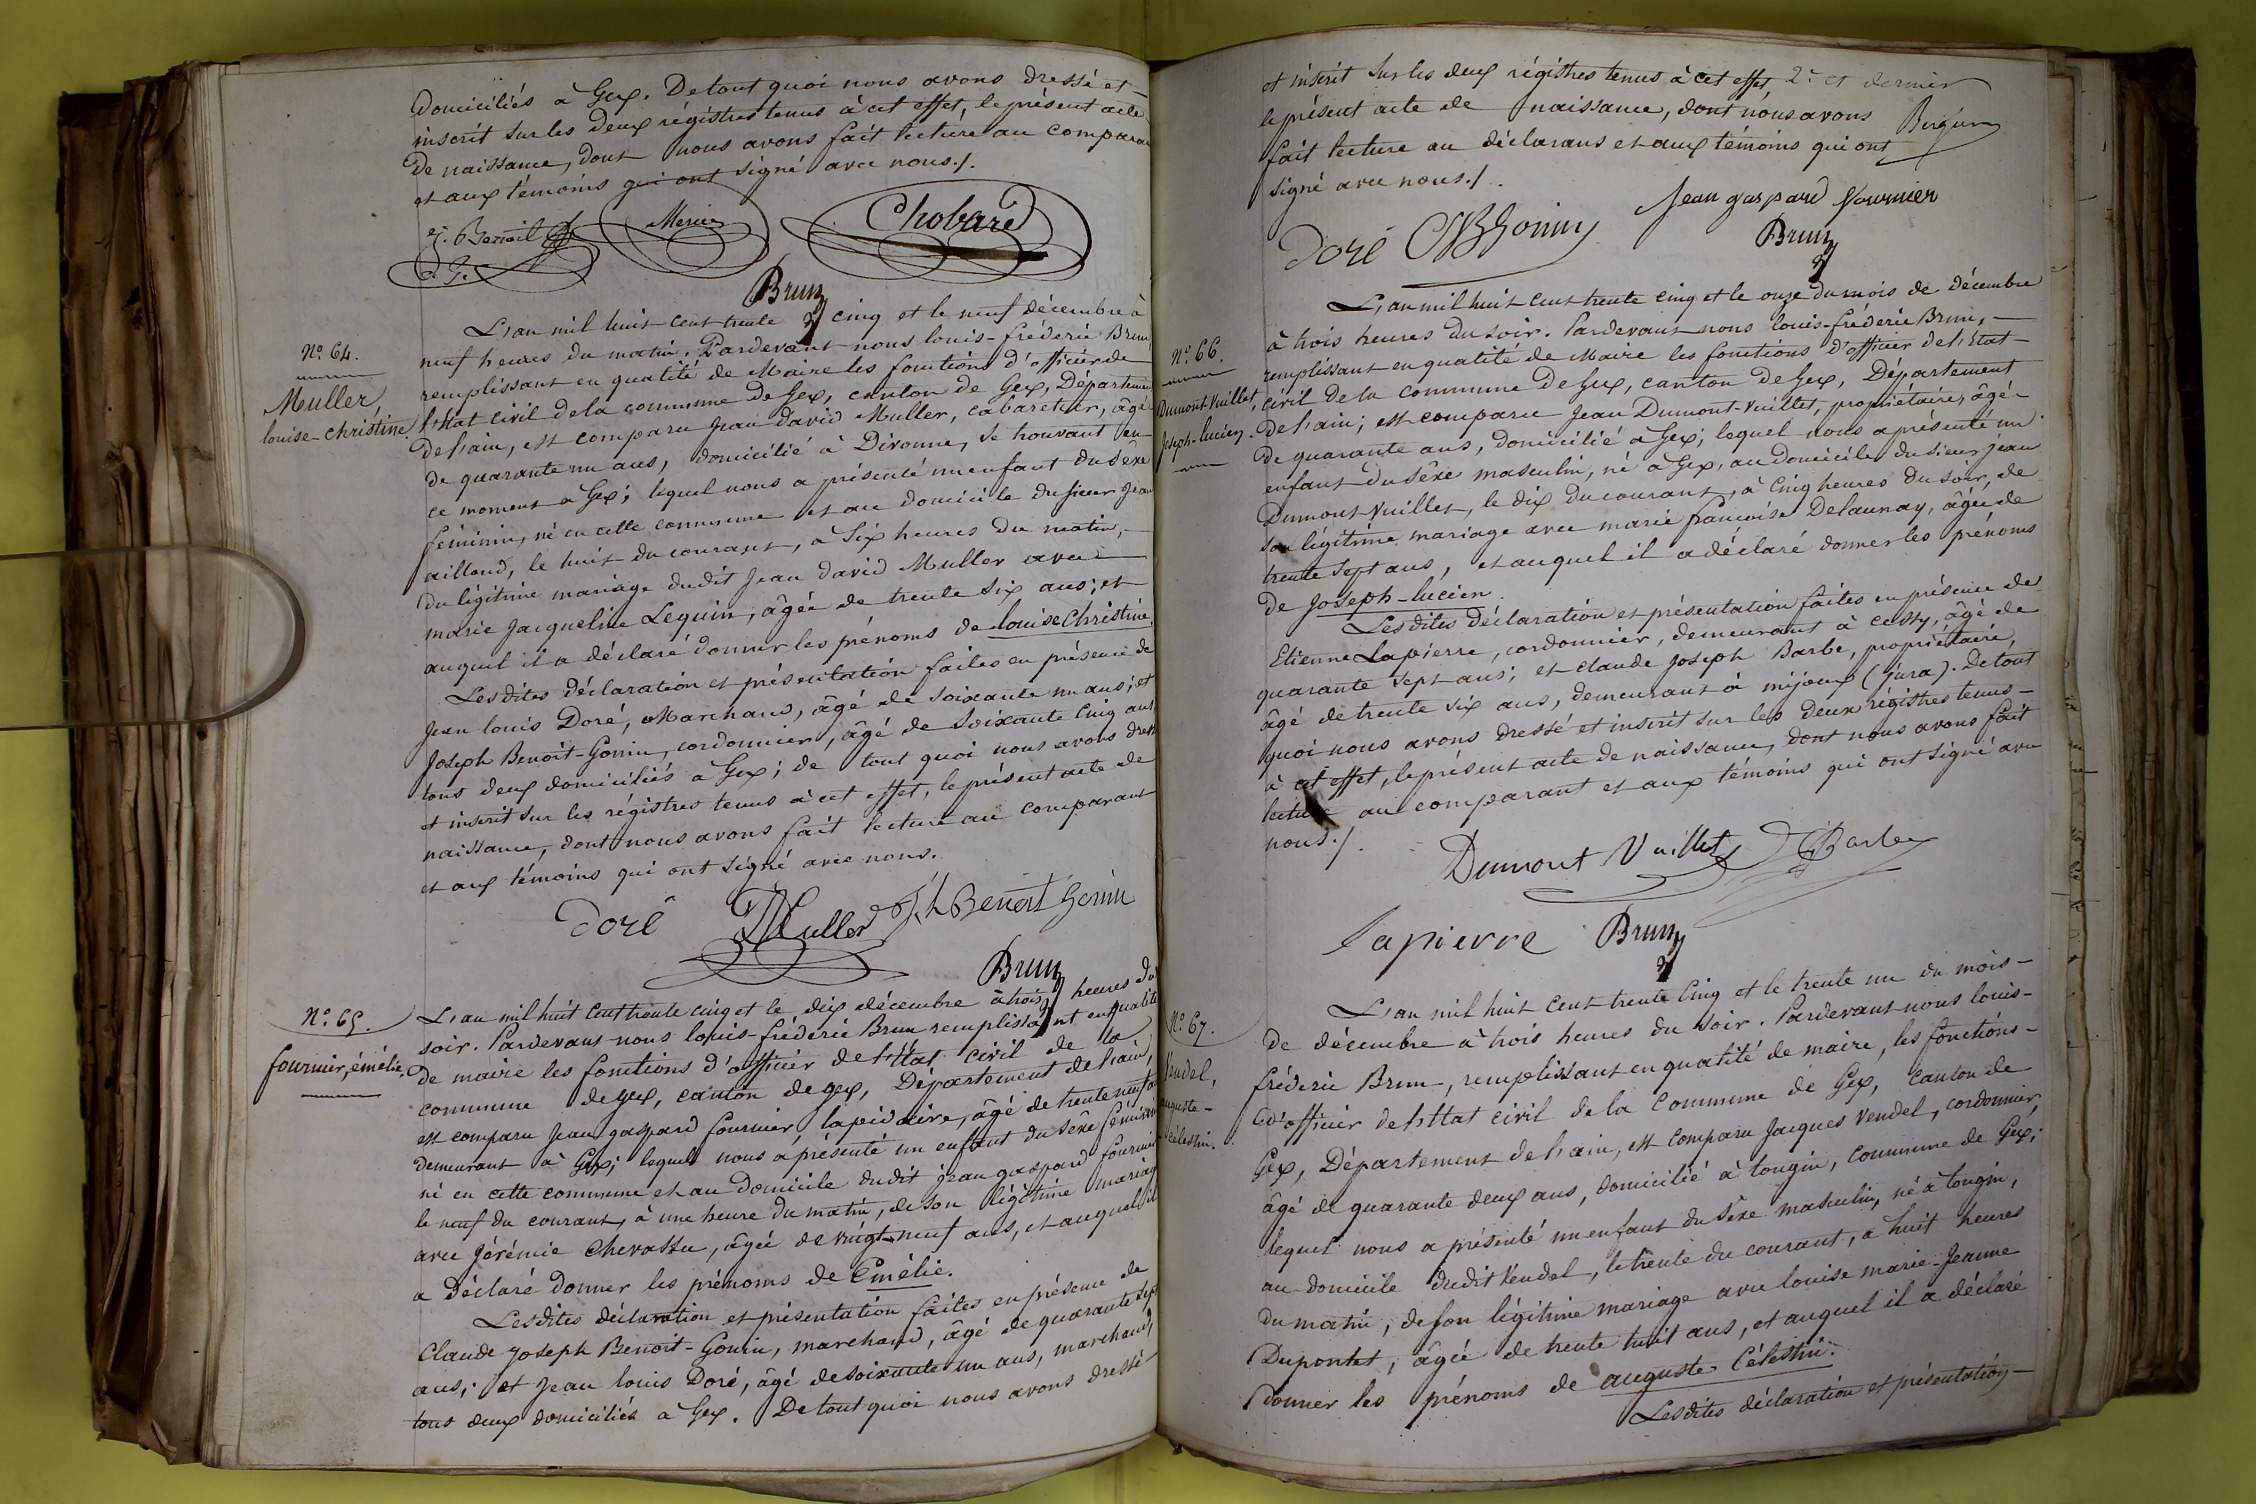 domiciliés à Gex. De tout quoi nous avons dressé et
inscrit sur les deux régistres tenus à cet effet, le présent acte
de naissance, dont nous avons fait lecture au compara
et aux témoins qui ont signé avec nous./.
Mercier
Chobard
Brun
N.º 64.
Muller
louise-christine.
L'an mil huit cent trente cinq et le neuf décembre à
neuf heures du matin. Pardevant nous louis-fréderic Brun,
remplissant en qualité de Maire les fonctions d'officier de
l'Etat civil de la commune de Gex, canton de Gex, Départeme
de l'ain, est comparu Jean david Muller, cabaretier, âgé
de quarante un ans, domicilié à Divonne, se trouvant en
ce moment à Gex; lequel nous a présenté un enfant du sexe
féminin, né en cette commune et au domicile du sieur Jean
aillond, le huit du courant, à six heures du matin,
du légitime mariage dudit Jean david Muller avec
marie Jacqueline Lequin, âgée de trente six ans; et
auquel il a déclaré donner les prénoms de louise Christine.
Lesdites déclaration et présentation faites en présence de
Jean louis Doré, Marchand, âgé de soixante un ans; et
Joseph Benoit-Gonin, cordonnier, âgé de soixante cinq ans
tous deux domiciliés à Gex; de tout quoi nous avons dressé
et inscrit sur les régistres tenus à cet effet, le présent acte de
naissance, dont nous avons fait lecture au comparant
et aux témoins qui ont signé avec nous.
Doré Muller Jh Benoit Gonin
Brun
N.º 65.
fournier, émélie.
L'an mil huit cent trente cinq et le dix décembre à trois heures du
soir. Pardevant nous louis-fréderic Brun remplissant en qualité
de maire les fonctions d'officier de l'Etat civil de la
commune de gex, canton de gex, Département de l'ain,
est comparu Jean gaspard fournier, lapidaire, âgé de trente neuf a
demeurant à Gex; lequel nous a présenté un enfant du sexe féminin
né en cette commune et au domicile dudit jean gaspard fournier
le neuf du courant, à une heure du matin, de son légitime mariag
avec Jérémie Chevassu, âgée de vingt-neuf ans, et auquel il
a déclaré donner les prénoms de Emélie.
Lesdites déclaration et présentation faites en présence de
Claude Joseph Benoit-Gonin, marchand, âgé de quarante sept
ans; et Jean louis Doré, âgé de soixante un ans, marchand,
tous deux domiciliés à Gex. De tout quoi nous avons dressé
et inscrit sur les deux régistres tenus à cet effet 2.e et dernier
le présent acte de naissance, dont nous avons
fait lecture au déclarans et aux témoins qui ont
signé avec nous./.
Jean gaspard Fournier
Doré
Brun
N.º 66.
Dumont-Vuillet,
Joseph-lucien.
L'an mil huit cent trente cinq et le onze du mois de décembre
à trois heures du soir. Pardevant nous louis-frederic Brun,
remplissant en qualité de Maire les fonctions d'officier de l'Etat
civil de la commune de Gex, canton de Gex, Département
de l'ain; est comparu Jean Dumont-Vuillet, propriétaire, âgé
de quarante ans, domicilié à Gex; lequel nous a présenté un
enfant du sêxe masculin, né à Gex, au domicile du sieur jean
Dumont-Vuillet, le dix du courant, à cinq heures du soir, de
son légitime mariage avec marie françoise Delaunay, âgée de
trente sept ans, et auquel il a déclaré donner les prénoms
de Joseph-lucien.
Lesdites déclaration et présentation faites en présence de
Etienne Lapierre, cordonnier, demeurant à cessy, âgé de
quarante sept ans; et claude Joseph Barbe, propriétaire,
âgé de trente six ans, demeurant à mijoux (Jura). De tout
quoi nous avons dressé et inscrit sur les deux régistres tenus
à cet effet, le présent acte de naissance, dont nous avons fait
lecture au comparant et aux témoins qui ont signé avec
nous./.
Dumont Vuillet Barbe
Lapierre Brun
N.º 67.
Vendel,
auguste-
célestin.
L'an mil huit cent trente cinq et le trente un du mois
de décembre à trois heures du soir. Pardevant nous louis-
fréderic Brun, remplissant en qualité de maire, les fonctions
d'officier de l'Etat civil de la commune de Gex, canton de
Gex, Département de l'ain, est comparu Jacques Vendel, cordonnier,
âgé de quarante deux ans, domicilié à tougin, commune de Gex;
lequel nous a présenté un enfant du sêxe masculin, né à tougin,
au domicile dudit Vendel, le trente du courant, à huit heures
du matin, de son légitime mariage avec louise marie-Jeanne
Dupontet, âgée de trente huit ans, et auquel il a déclaré
donner les prénoms de auguste Célestin.
Lesdites déclaration et présentation